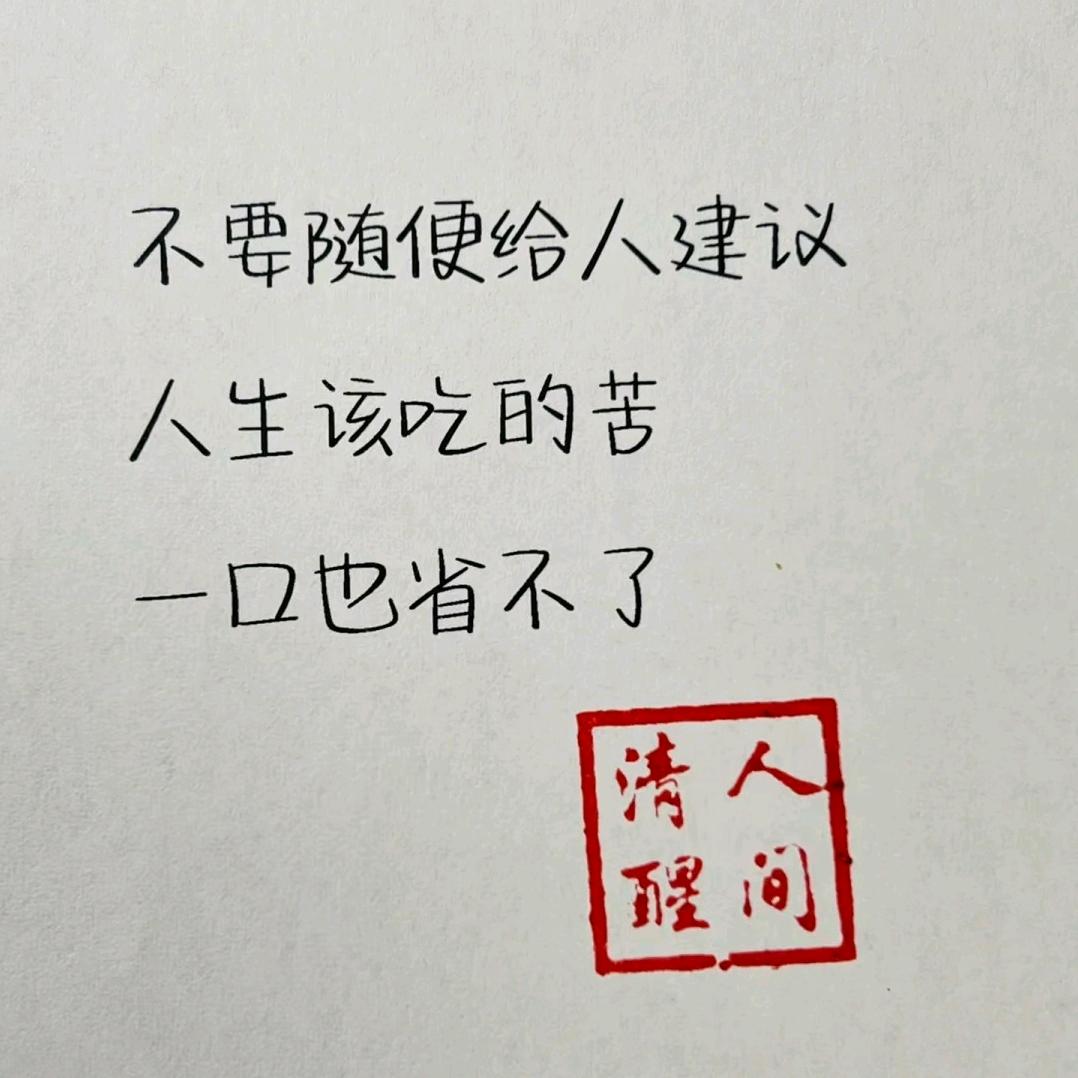 不要随便给人建议
人生该吃的苦
一口也省不了
人间
清醒